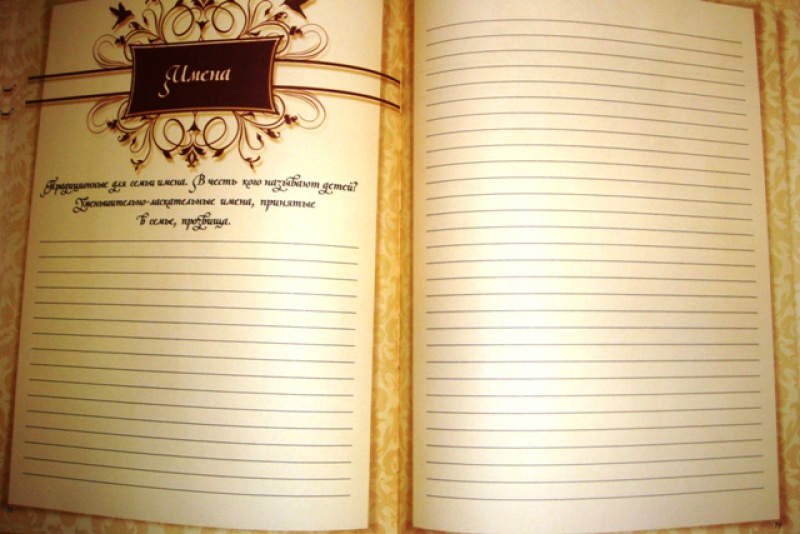 Имена
Традиционные для семьи имена. В честь кого называют детей?
Уменьшительно-ласкательные имена, принятые
в семье, прозвища.